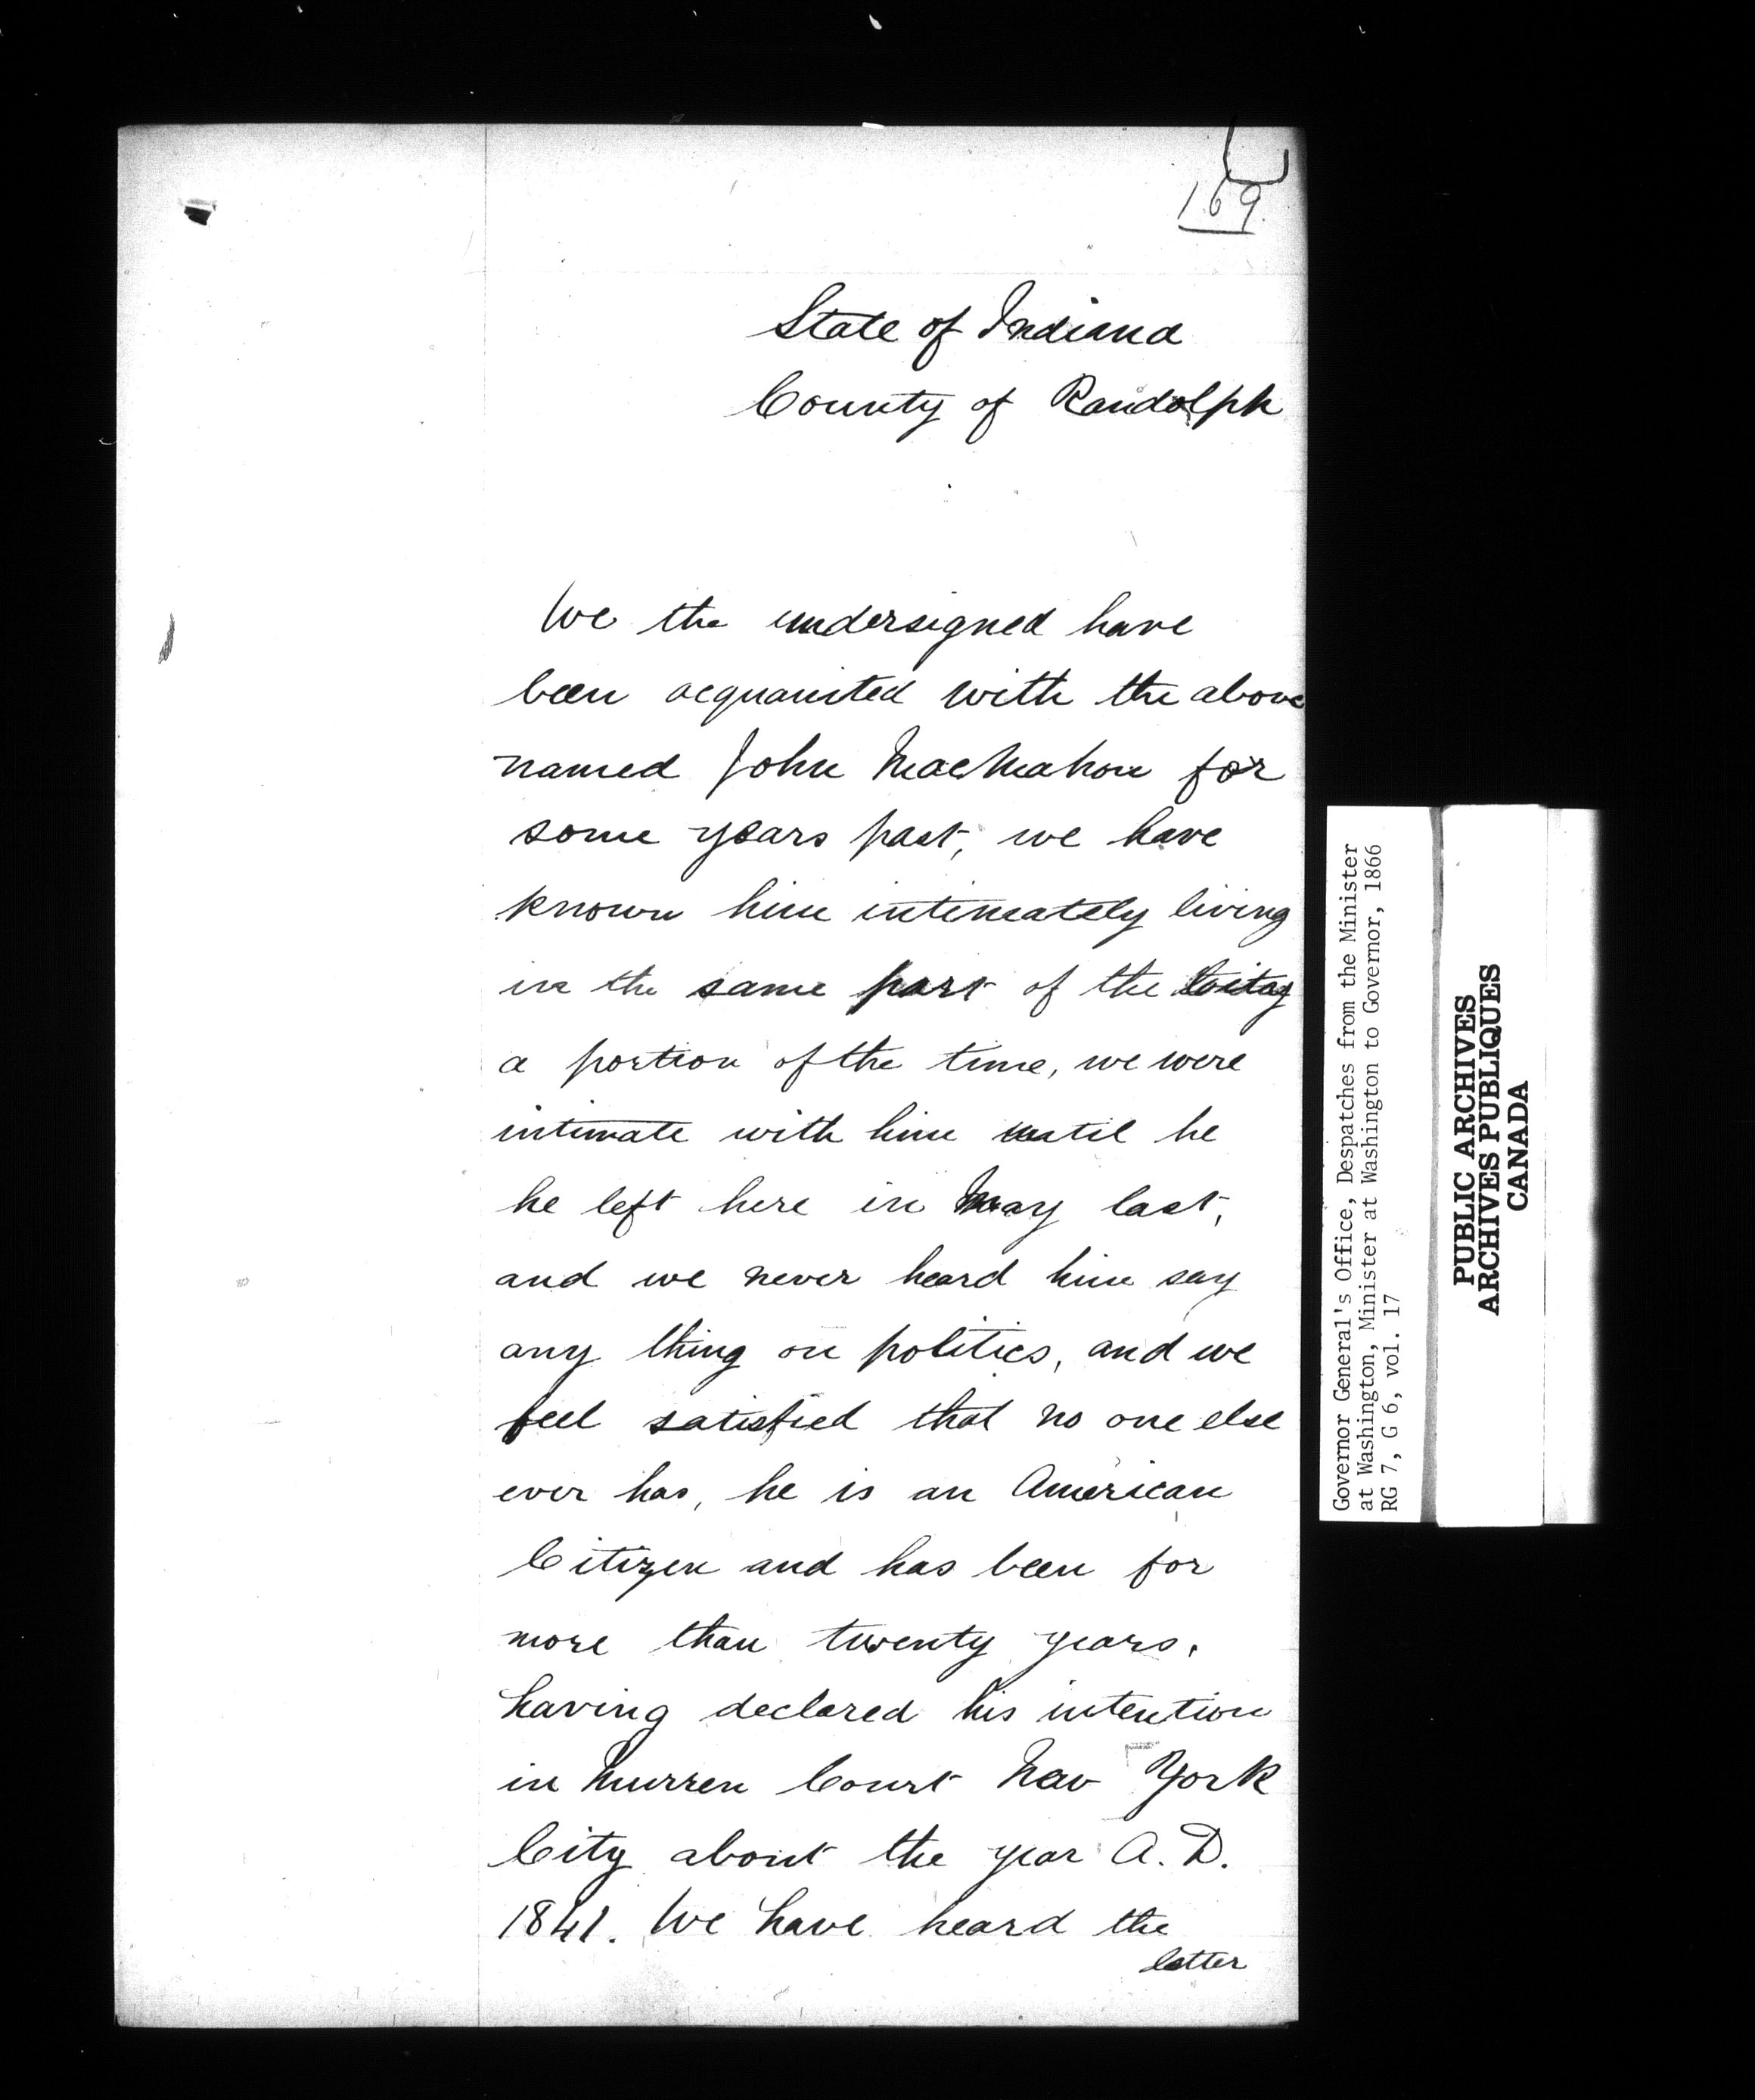 169.
State of Indiana
County of Randolph
We the undersigned have
been acquainted with the above
named John MacMahon for
some years past, we have
known him intimately living
in the same part of the
a portion of the time, we were
intimate with him until he
he left here in May last,
and we never heard him say
any thing on politics, and we
feel satisfied that no one else
ever has, he is an American
Citizen and has been for
more than twenty years,
having declared his intention
in Murren Court New York
City about the year A.D.
1841. We have heard the
letter
Governor General's Office, Despatches from the Minister
at Washington, Minister at Washington to Governor, 1866
RG 7, G 6, vol. 17
PUBLIC ARCHIVES
ARCHIVES PUBLIQUES
CANADA